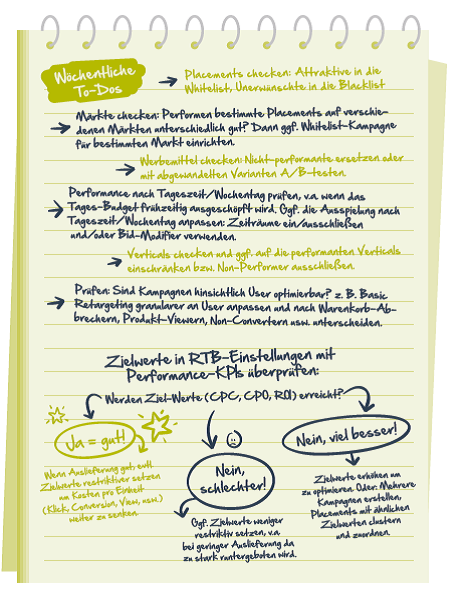 Wöchentliche
To-Dos
Placements checken: Attraktive in die
Whitelist, Unerwünschte in die Blacklist
Märkte checken: Performen bestimmte Placements auf verschie-
denen Märkten unterschiedlich gut? Dann ggf. Whitelist-Kampagne
für bestimmten Markt einrichten.
Werbemittel checken: Nicht-performante ersetzen oder
mit abgewandelten Varianten A/B-testen.
Performance nach Tageszeit/Wochentag prüfen, v.a. wenn das
Tages-Budget frühzeitig ausgeschöpft wird. Ggf. die Ausspielung nach
Tageszeit/Wochentag anpassen: Zeiträume ein/ausschließen
und/oder Bid-Modifier verwenden.
Verticals checken und ggf. auf die performanten Verticals
einschränken bzw. Non-Performer ausschließen.
Prüfen: Sind Kampagnen hinsichtlich User optimierbar? z. B. Basic
Retargeting granularer an User anpassen und nach Warenkorb-Ab-
brechern, Produkt-Viewern, Non-Convertern usw. unterscheiden.
Zielwerte in RTB-Einstellungen mit
Performance-KPIs überprüfen:
Werden Ziel-Werte (CPC, CPO, ROI) erreicht?
Ja = gut!
Wenn Auslieferung gut, evtl.
Zielwerte restriktiver setzen
um Kosten pro Einheit
(Klick, Conversion, View, usw.)
weiter zu senken.
Nein,
schlechter!
Ggf. Zielwerte weniger
restriktiv setzen, v.a.
bei geringer Auslieferung da
zu stark runtergeboten wird.
Nein, viel besser!
Zielwerte erhöhen um
zu optimieren. Oder: Mehrere
Kampagnen erstellen,
Placements mit ähnlichen
Zielwerten clustern
und zuordnen.